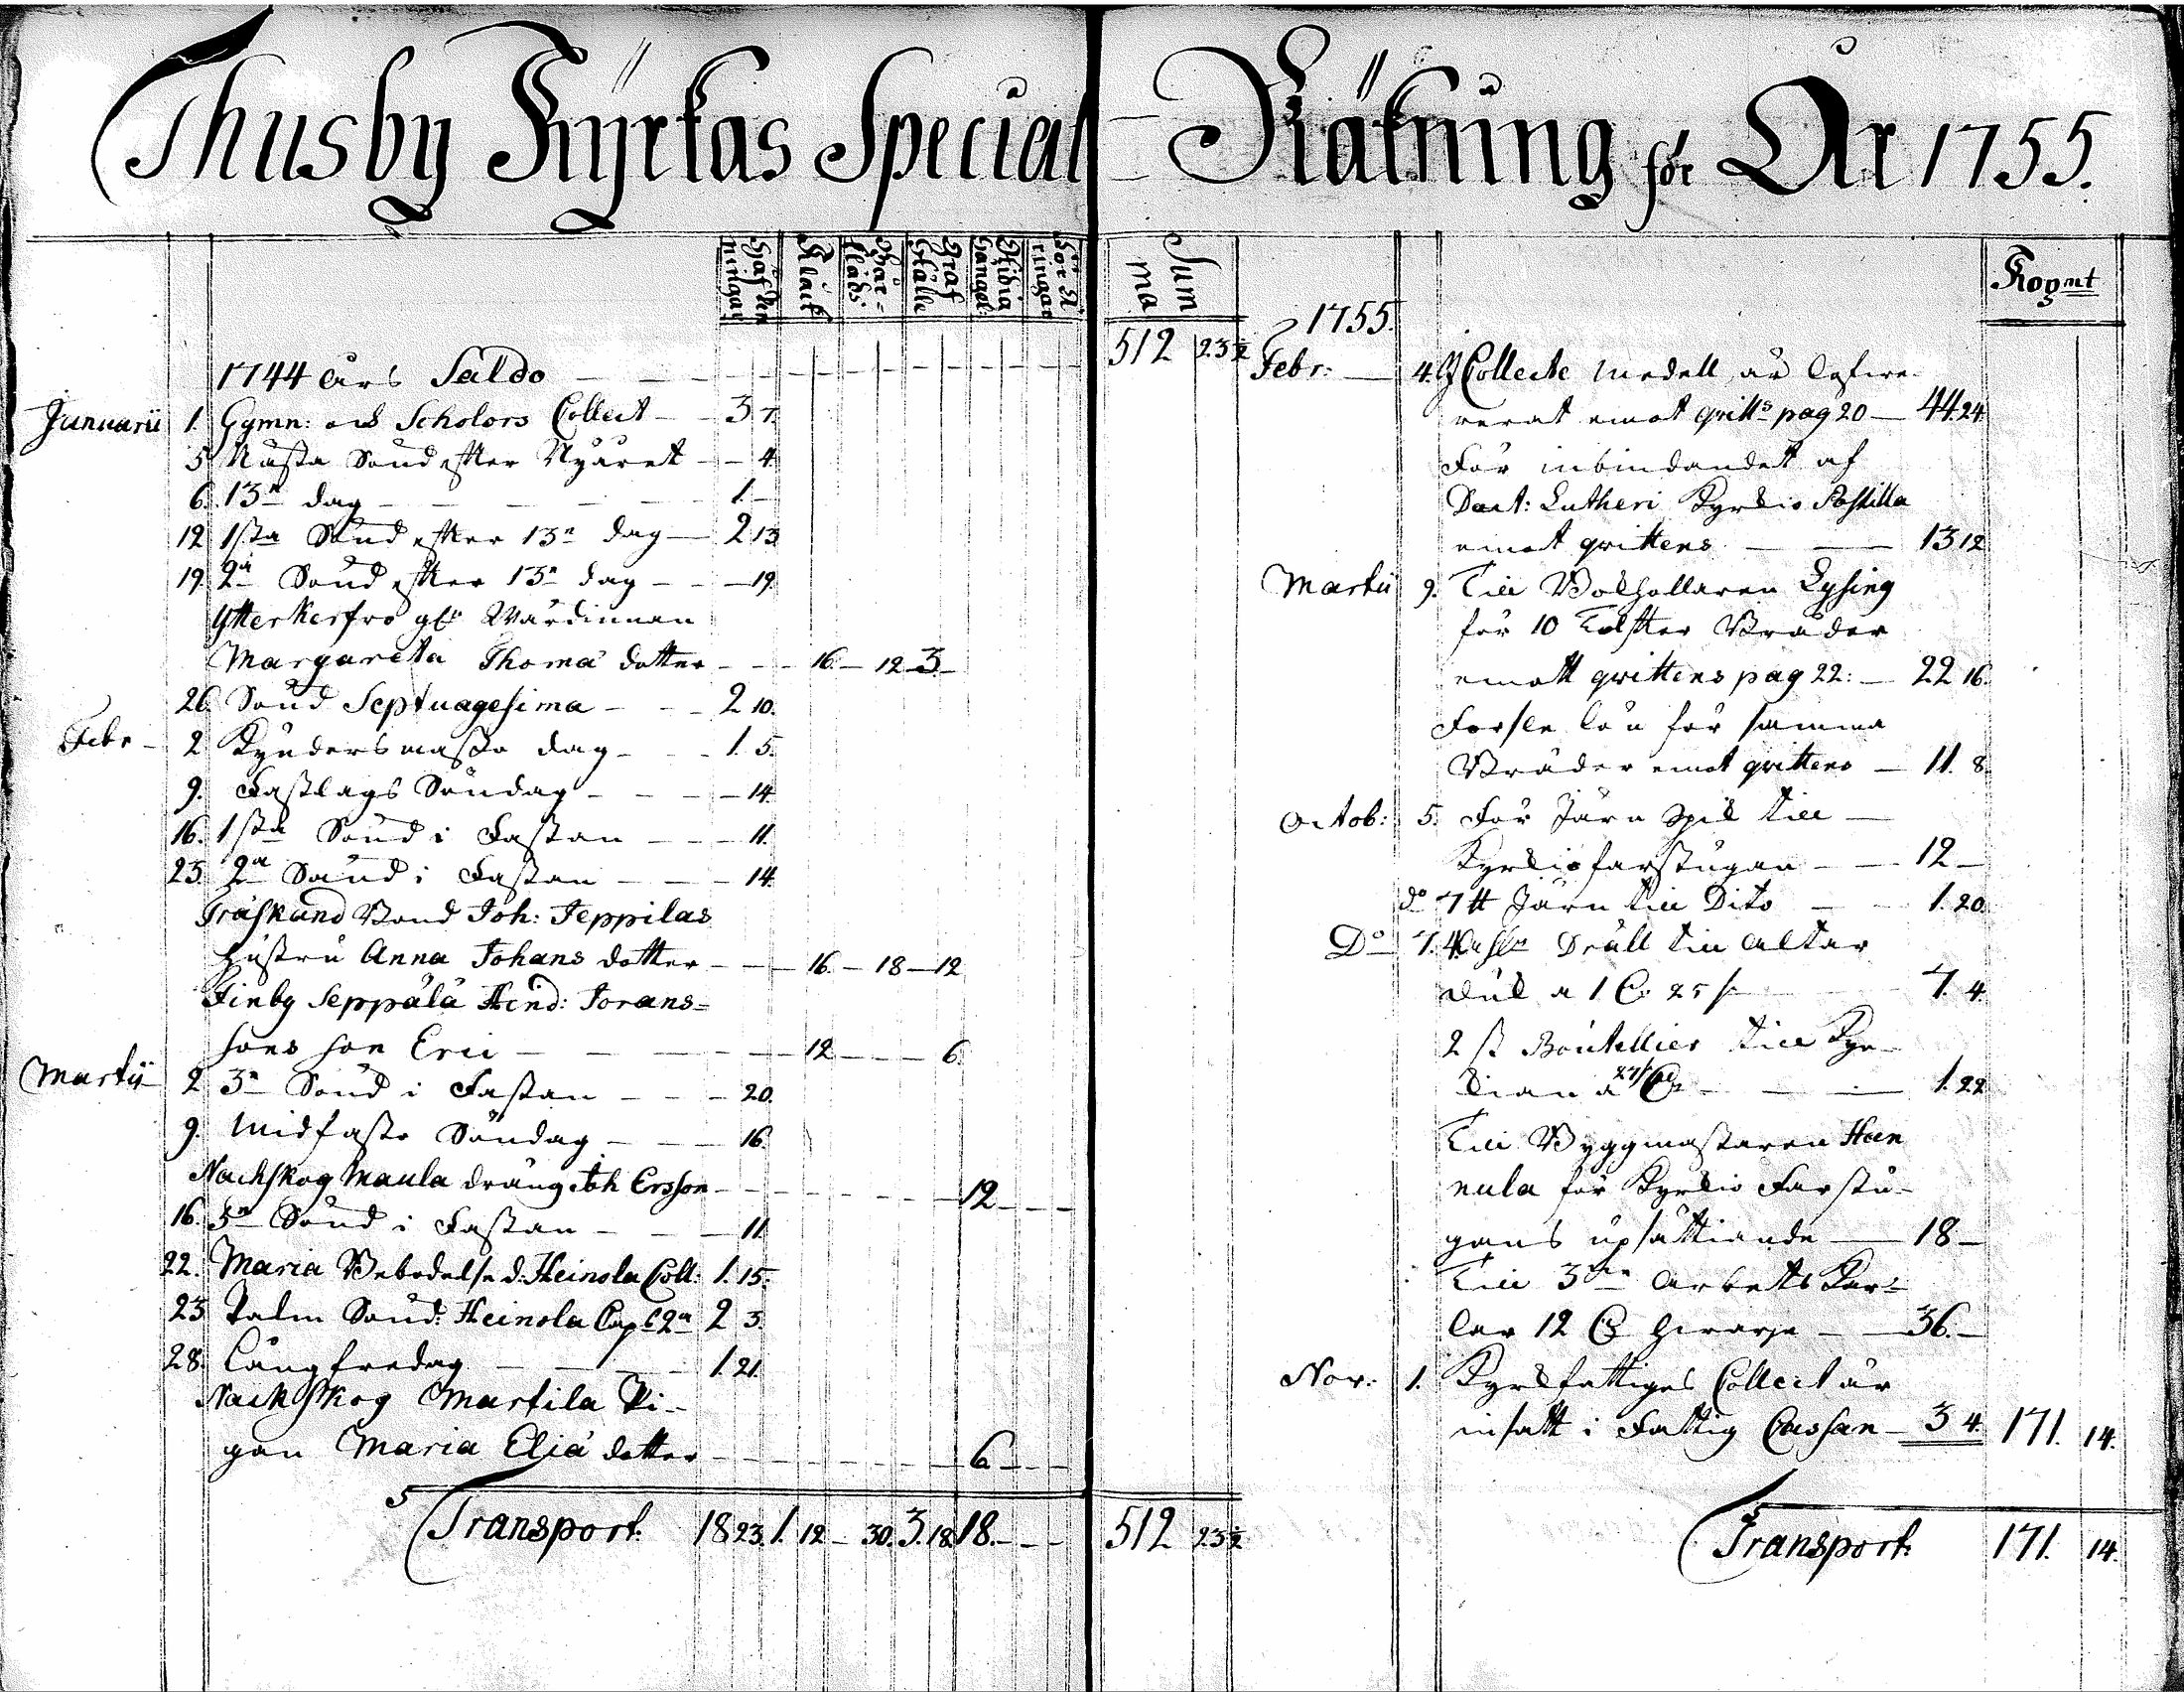 Thusby Kyrkas Special-Räkning för År 1755.
Håfpenningar
Klåck
Bår-kläds:
Graf Ställe
Sum ma
512 23½
1744 års Saldo
Januarii 1. Gymn: och Scholors Collect 3 7.
5 Nästa Sönd. efter Nyåret 4.
6. 13n dag 1.
12 1sta Sönd. efter 13n dag 2 13.
19. 2a Sönd. efter 13n dag 19.
Ytterkersfro Wärdinnan
Margareta Thomä dotter 16. 12 3
26 Sönd Septuagesima 2 10.
Febr 2 Kyndersmässo dag 1. 5.
9. Fastlags Söndag 14.
16. 1sta Sönd i Fastan 11.
23. 2a Sönd i Fastan 14.
Träskänd Bond Joh: Jeppilas
hustru Anna Johans dotter 16. 18 12
Finby Seppälä Hind: Jorans=
sons son Eric 12 6.
Martii 2 3n Sönd i Fastan 20.
9. Midfasto Söndag 16.
Nackskog Maula dräng Joh Ersson 12
16. 5n Sönd i Fastan 11.
22. Maria Bebodelse d: Heinola Coll: 1. 15.
23 Palm Sönd: Heinola Cap 2a 2 3.
28. Långfredag 1. 21.
Nackskog Martila Pi-
gan Maria Eliä dotter 6
Transport. 18 23. 1. 12 30. 3. 18. 18. 512 23½
Kopmt
1755.
Febr: 4. Collecte medell är lefwe-
rerat emot qvitts pag 20 44. 24.
För inbindandet af
Doct: Lutheri Kyrkio Postilla
emot qvittens 13 12
Martii 9. Till Bokhollaren Lysing
för 10 Tolfter Bräder
emott qvittens pag 22: 22 16.
Forsle lön för samma
Bräder emot qvittens 11. 8.
Octob: 5. För Järn Spik till
Kyrkiofarstugan 12
do 7 ℔ Järn till Dito 1. 20.
Do 7. 4 Dräll till Altar
duk a 1 25 7. 4.
2 st Boutellier till Kyr-
kian a 1. 22
Till Byggmästaren Han
nula för Kyrkio Farstu-
gans upsättiande 18
Till 3ne Arbets Kar=
lar 12 hwarje 36.
Nov: 1. Kyrkfattiges Collect är
insatt i Fattig Cassan 3 4. 171. 14.
Transport. 171. 14.